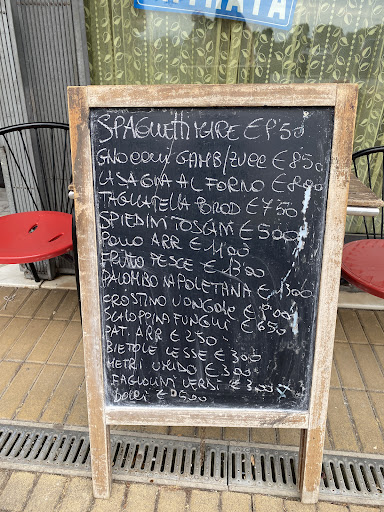 ENTRATA
SPAGHETTI € 8'50
GNOCCHI GAMB/ZUCC € 8'50
LASAGNA AL FORNO € 8'00
TAGLIATELLA POROD € 7'50
SPIEDINI TOSCANI € 5'00
POLLO ARR € 4'00
FRITTO PESCE €
PALOMBO NAPOLETANA €
CROSTINO VONGOLE €
SCALOPPINA FUNGHI € 6'50
PAT. ARR € 2'50
BIETOLE LESSE € 3'00
UMIDO € 3'00
FAGIOLINI VERDI € 3'00
DOLCI €